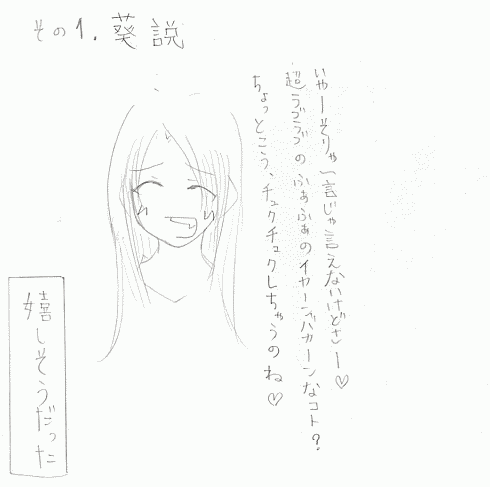 その1.葵説
いやーそりゃ一言じゃ言えないけどさー♡
超うづうづのふぁふぁのイヤーンバカーンなコト?
ちょっとこう、チュクチュクしちゃうのね♡
嬉しそうだった